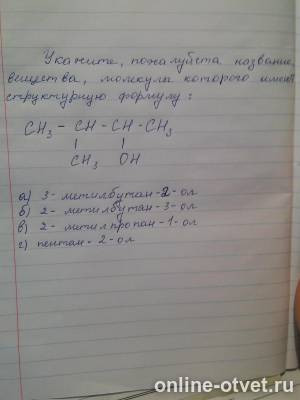 Укажите, пожалуйста название
вещества, молекула которого имеет
структурную формулу:
CH3 - CH - CH - CH3
CH3 OH
а) 3-метилбутан-2-ол
б) 2-метилбутан-3-ол
в) 2-метилпропан-1-ол
г) пентан-2-ол
online-otvet.ru